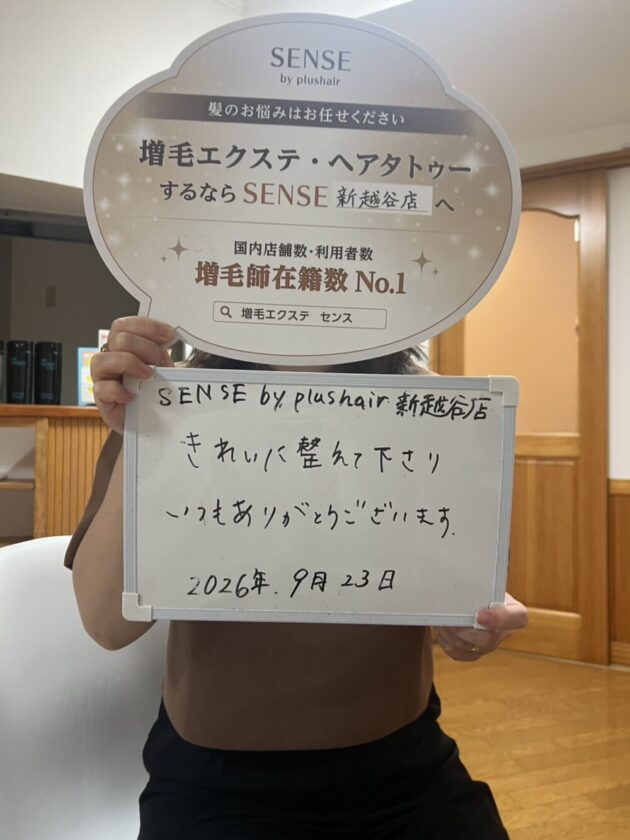 SENSE
by plushair
髪のお悩みはお任せください
増毛エクステ・ヘアタトゥー
するなら SENSE 新越谷店 へ
国内店舗数・利用者数
増毛師在籍数 No.1
増毛エクステ センス
SENSE by plushair 新越谷店
きれいに整えて下さり
いつもありがとうございます.
2026年.9月23日